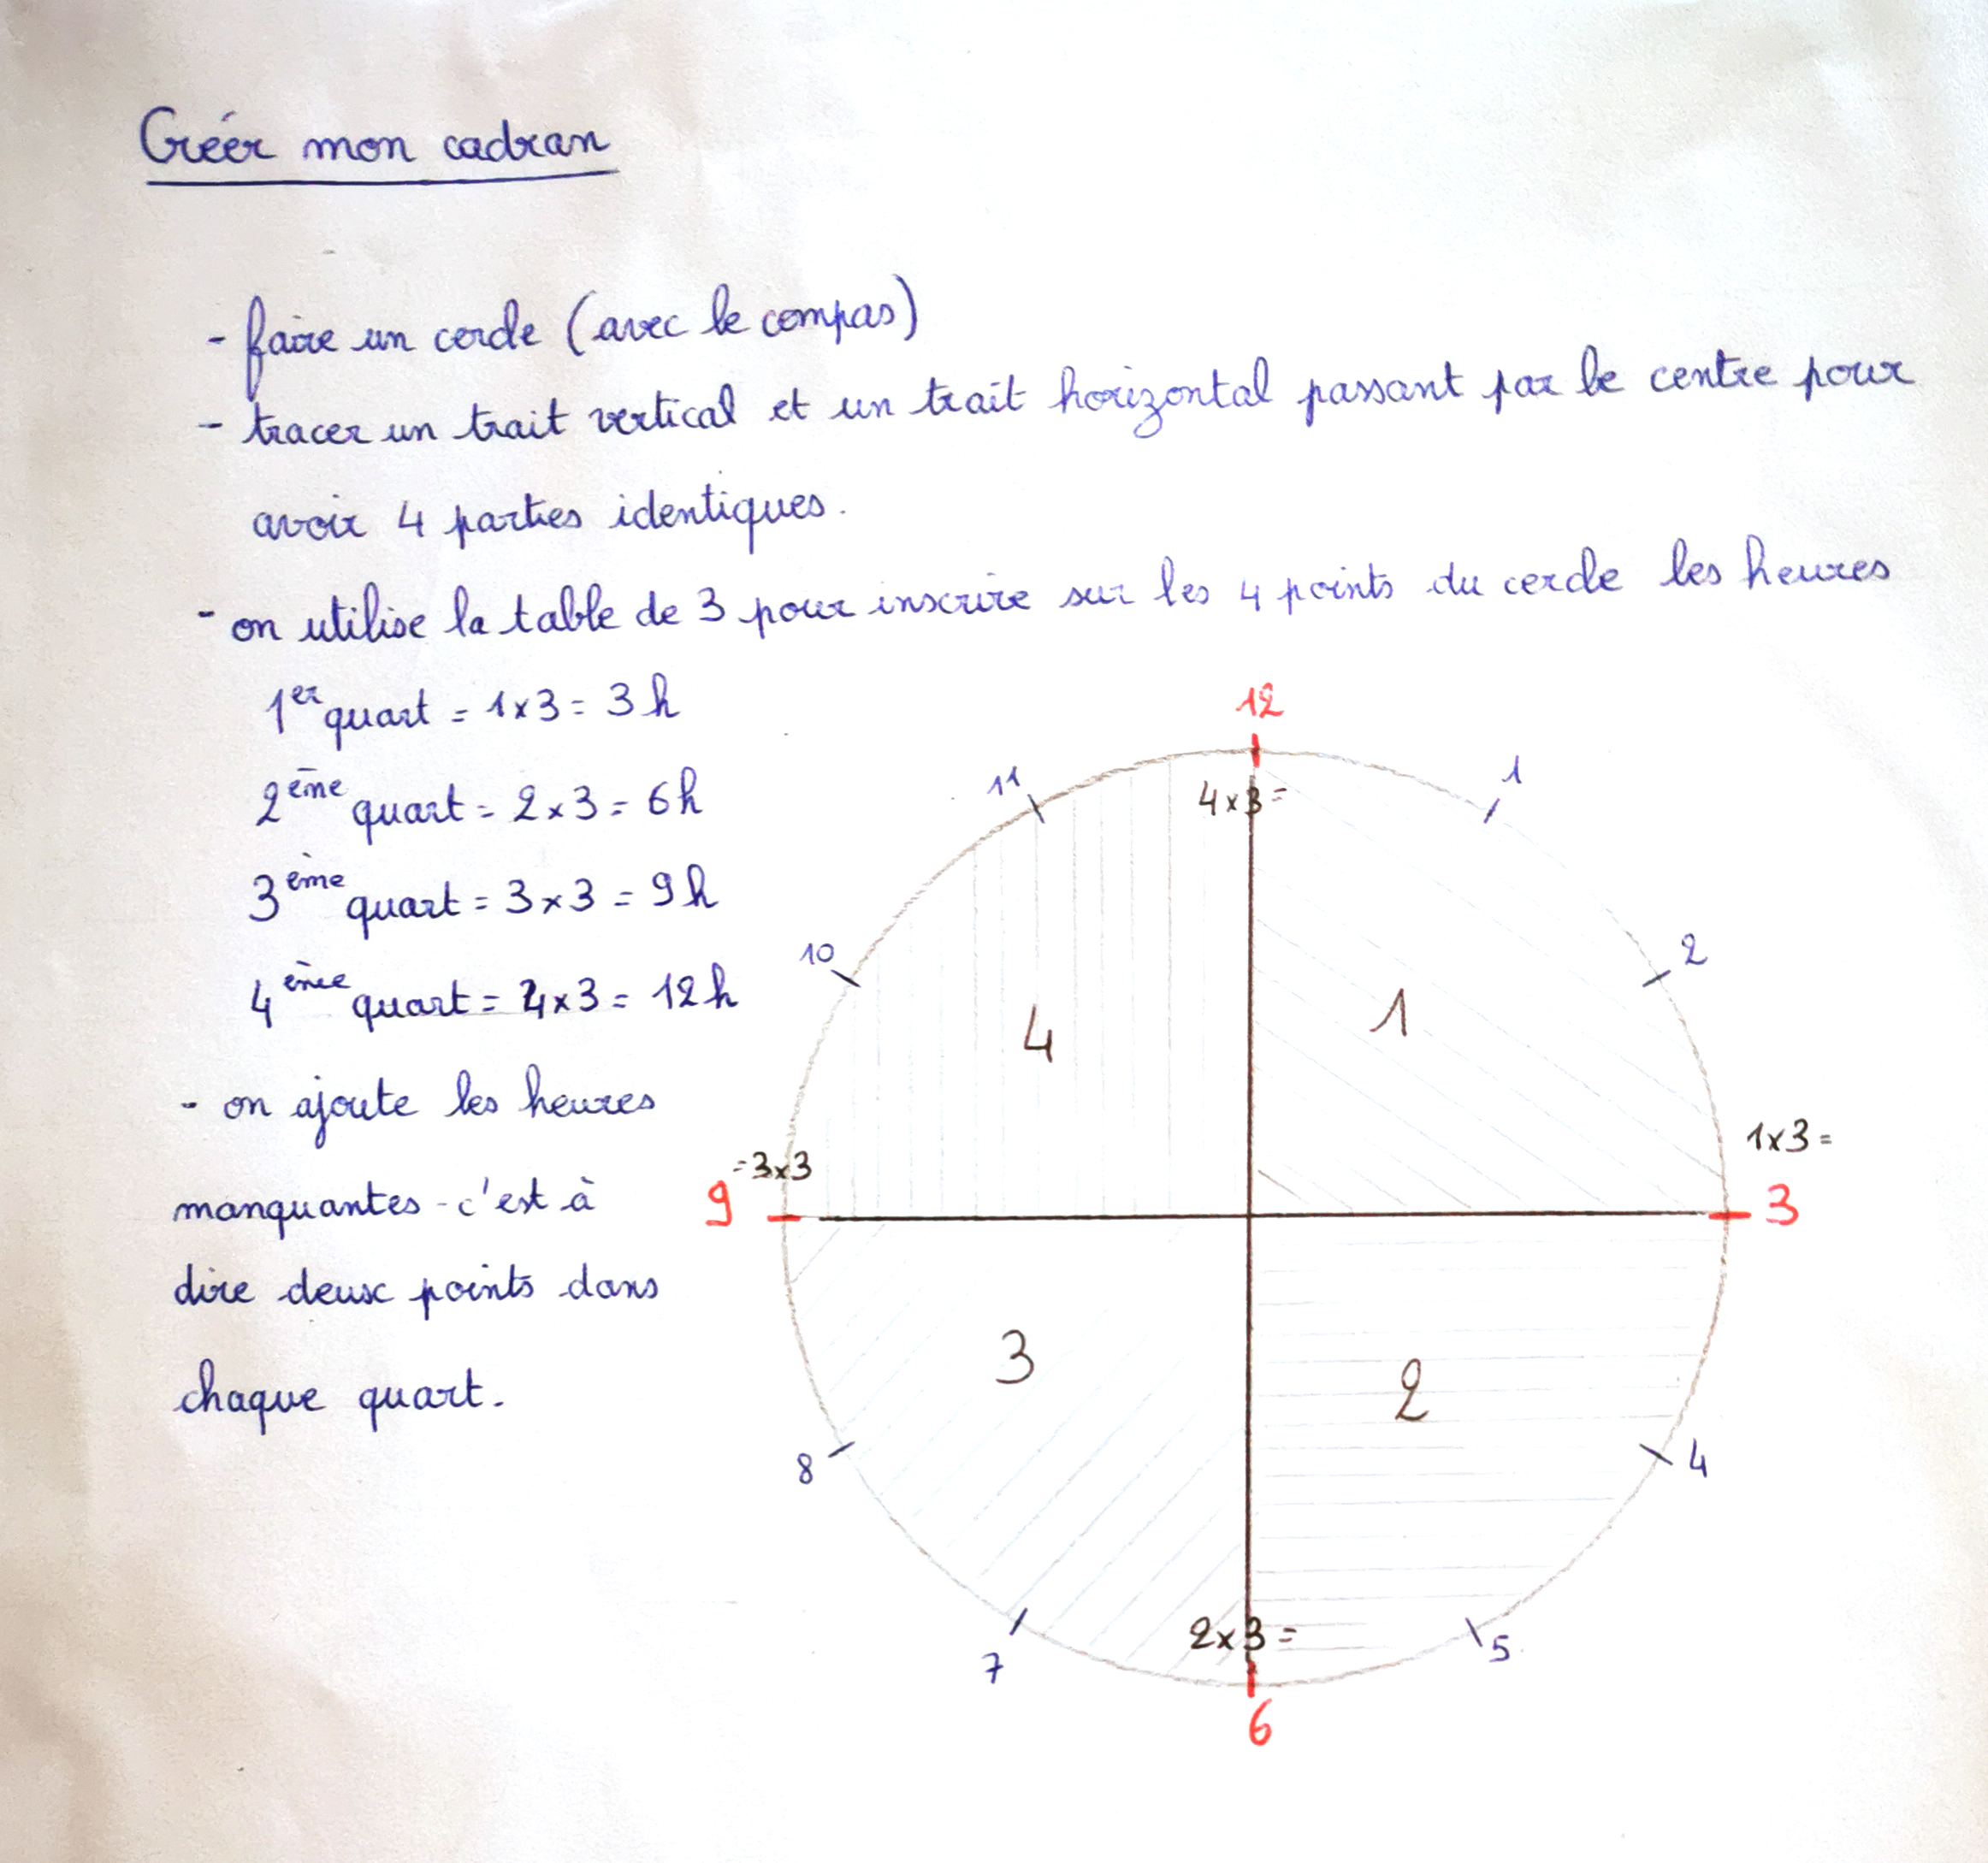 Créer mon cadran
- faire un cercle (avec le compas)
- tracer un trait vertical et un trait horizontal passant par le centre pour
avoir 4 parties identiques.
- on utilise la table de 3 pour inscrire sur les 4 points du cercle les heures
1er quart = 1x3 = 3h
2ème quart = 2x3 = 6h
3ème quart = 3x3 = 9h
4ème quart = 4x3 = 12h
- on ajoute les heures
manquantes - c'est à
dire deux points dans
chaque quart.
12
11
1
4x3=
10
2
4
1
1x3=
=3x3
9
3
3
2
8
4
2x3=
7
5
6